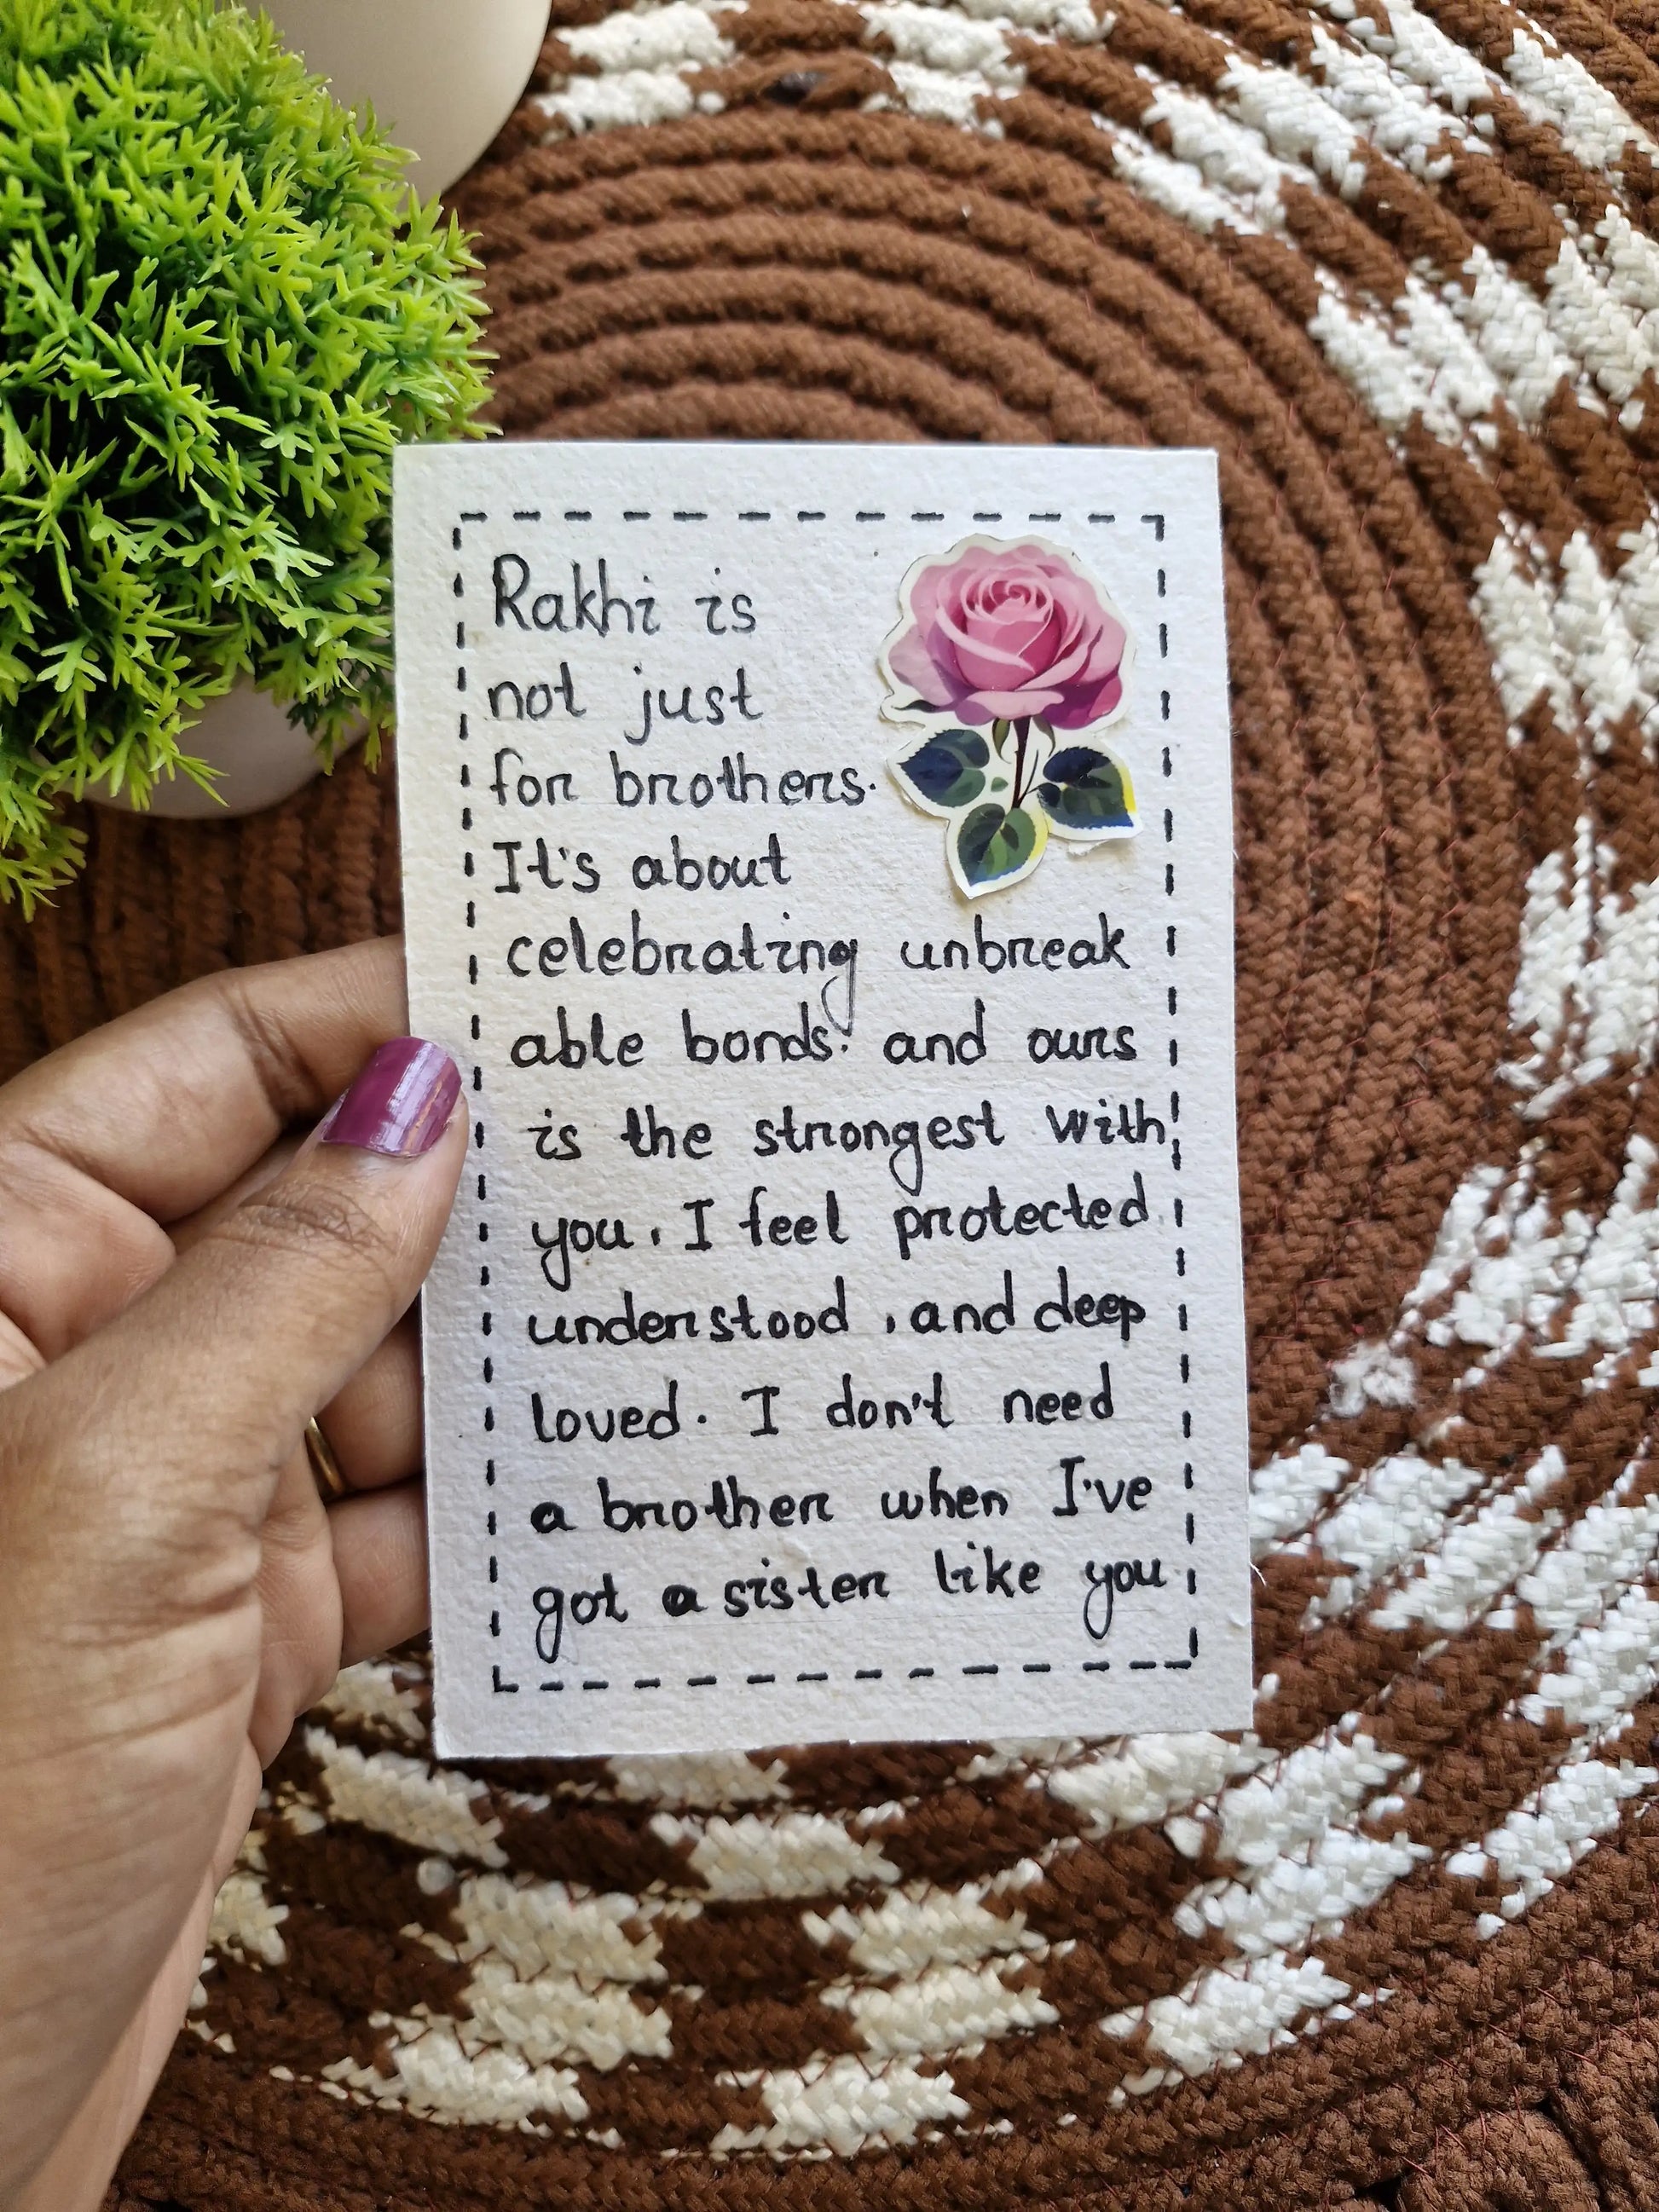 Rakhi is
not just
for brothers.
It's about
celebrating unbreak
able bonds. and ours
is the strongest with
you. I feel protected
understood , and deep
loved. I don't need
a brother when I've
got a sister like you